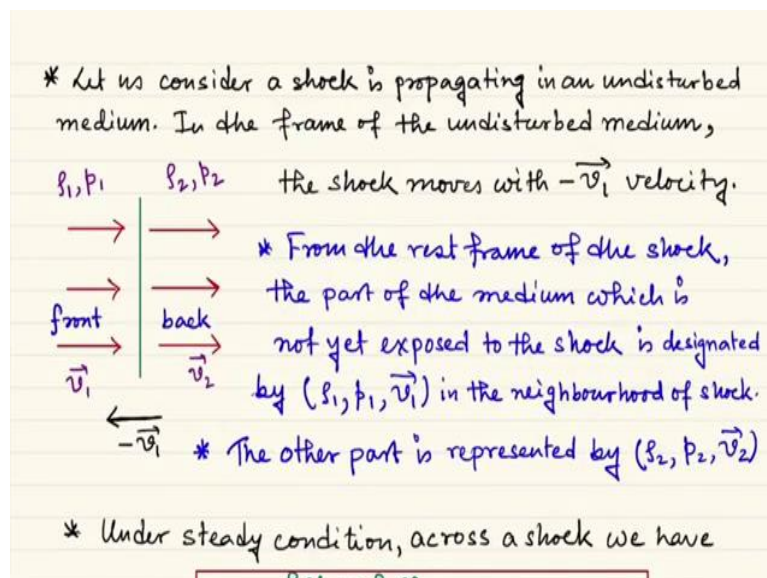 * Let us consider a shock is propagating in an undisturbed
medium. In the frame of the undisturbed medium,
ρ₁, p₁ ρ₂, p₂ the shock moves with −v⃗₁ velocity.
* From the rest frame of the shock,
the part of the medium which is
front back not yet exposed to the shock is designated
v⃗₁ v⃗₂ by (ρ₁, p₁, v⃗₁) in the neighbourhood of shock.
−v⃗₁ * The other part is represented by (ρ₂, p₂, v⃗₂)
* Under steady condition, across a shock we have